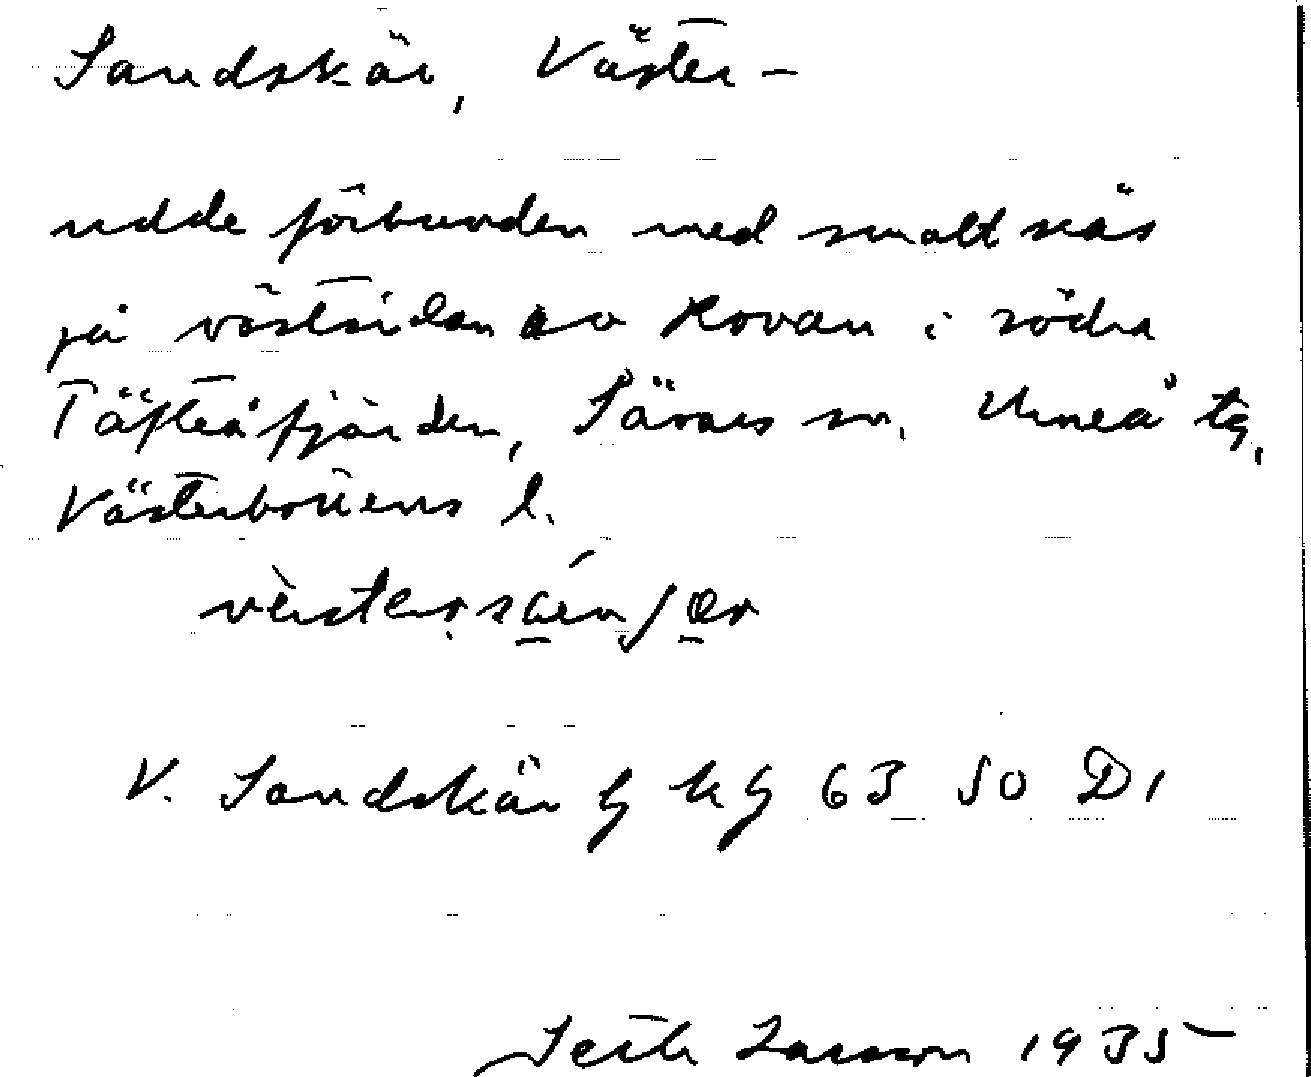 Sandskär, Väster-
udde förbunden med smalt näs
på västsidan av Kovan i södra
Täfteåfjärden, Sävars sn, Umeå tg,
Västerbottens l.
V. Sandskär 63 50 D1
Larsson 1935